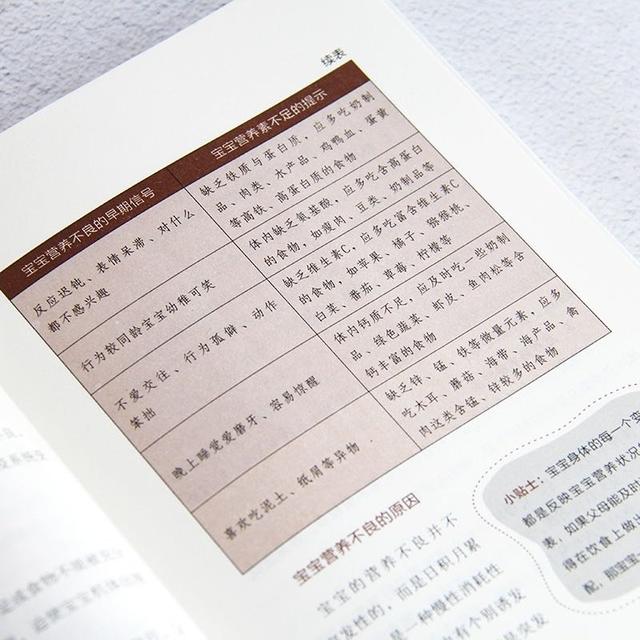 续表
宝宝营养不良的早期信号 宝宝营养素不足的提示
反应迟钝、表情呆滞、对什么
都不感兴趣
缺乏铁质与蛋白质,应多吃奶制
品、肉类、水产品、鸡鸭血、蛋黄
等高铁、高蛋白质的食物
行为较同龄宝宝幼稚可笑
体内缺乏氨基酸,应多吃含高蛋白
的食物,如瘦肉、豆类、奶制品等
不爱交往、行为孤僻、动作
笨拙
缺乏维生素C,应多吃富含维生素C
的食物,如苹果、橘子、猕猴桃、
白菜、番茄、草莓、柠檬等
晚上睡觉爱磨牙、容易惊醒
体内钙质不足,应及时吃一些奶制
品、绿色蔬菜、虾皮、鱼肉松等含
钙丰富的食物
喜欢吃泥土、纸屑等异物
缺乏锌、锰、铁等微量元素,应多
吃木耳、蘑菇、海带、海产品、禽
肉这类含锰、锌较多的食物
宝宝营养不良的原因
宝宝的营养不良并不
发性的,而是日积月累
是一种慢性消耗性
有个别诱发
突发
小贴士:宝宝身体的每一个变
都是反映宝宝营养状况
表,如果父母能及时
得在饮食上做
配,那宝宝